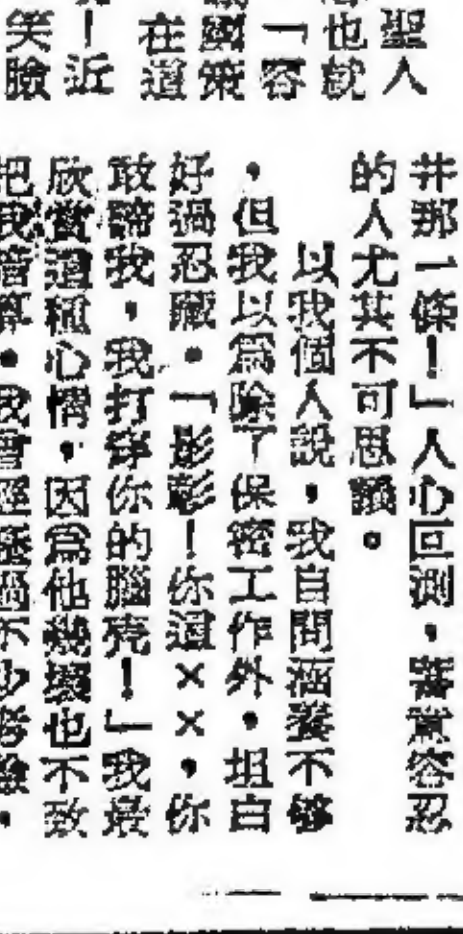 聖人
也就
「容
國策
在這
！近
笑臉
井那一條！」人心叵測，蓄意容忍
的人尤其不可思議。
以我個人說，我自問涵養不够
，但我以爲除了保密工作外，坦白
好過忍藏。「彭彭！你這××，你
敢諦我，我打穿你的腦壳！」我最
欣賞這種心情，因爲他幾壞也不致
把我暗算。我曾經歷過不少考驗，